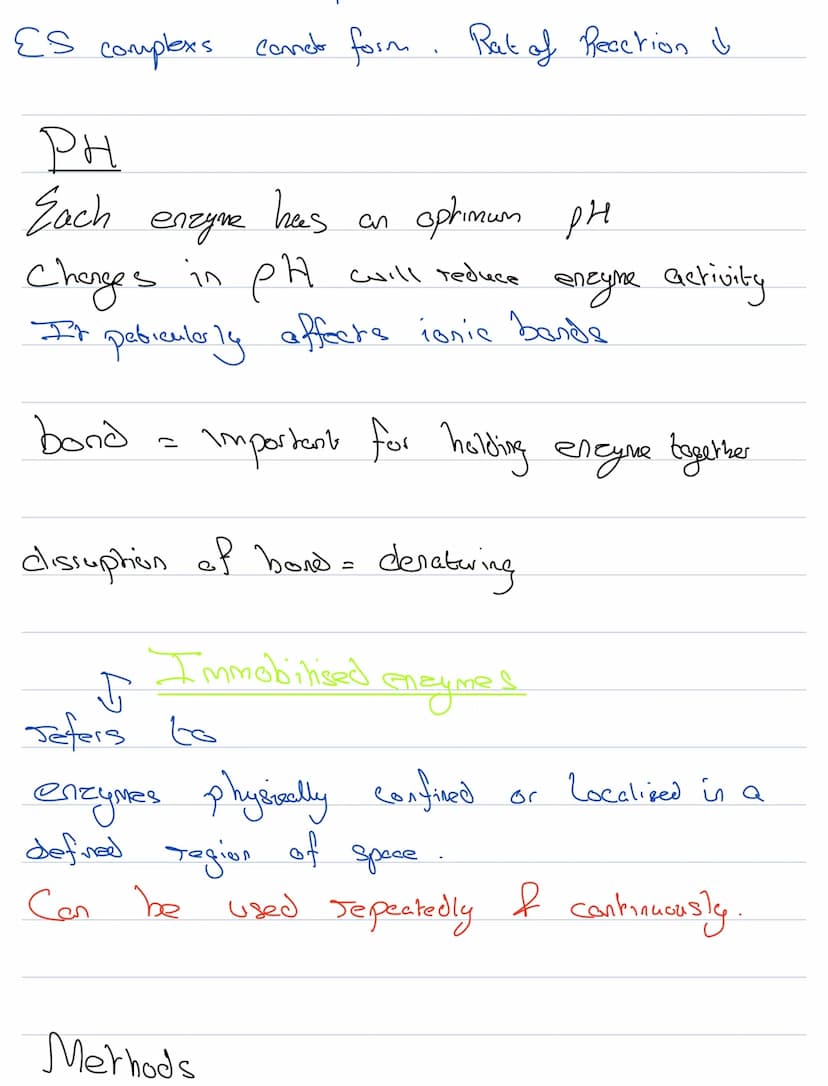 ES complexs cannot form. Rat of Reaction ↓
PH
Each enzyme has an optimum pH
Changes in pH will reduce enzyme activity
It paticularly affects ionic bonds
bond = important for holding enzyme together
dissuption of bond = denaturing
Immobilised enzymes
refers to
enzymes physically confined or localised in a
defined region of space.
Can be used repeatedly & continuously.
Methods